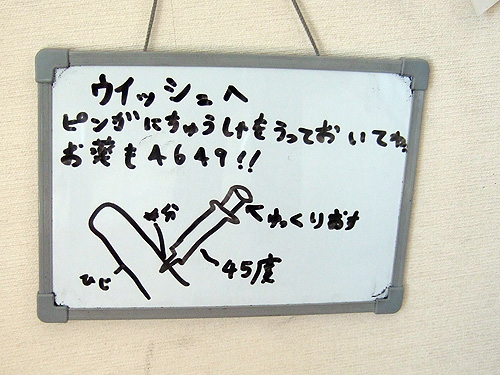 ウイッシュへ
ピンがにちゅうしゃをうっておいてね。
お薬も4649!!
ゆっくりおす
45度
ひじ